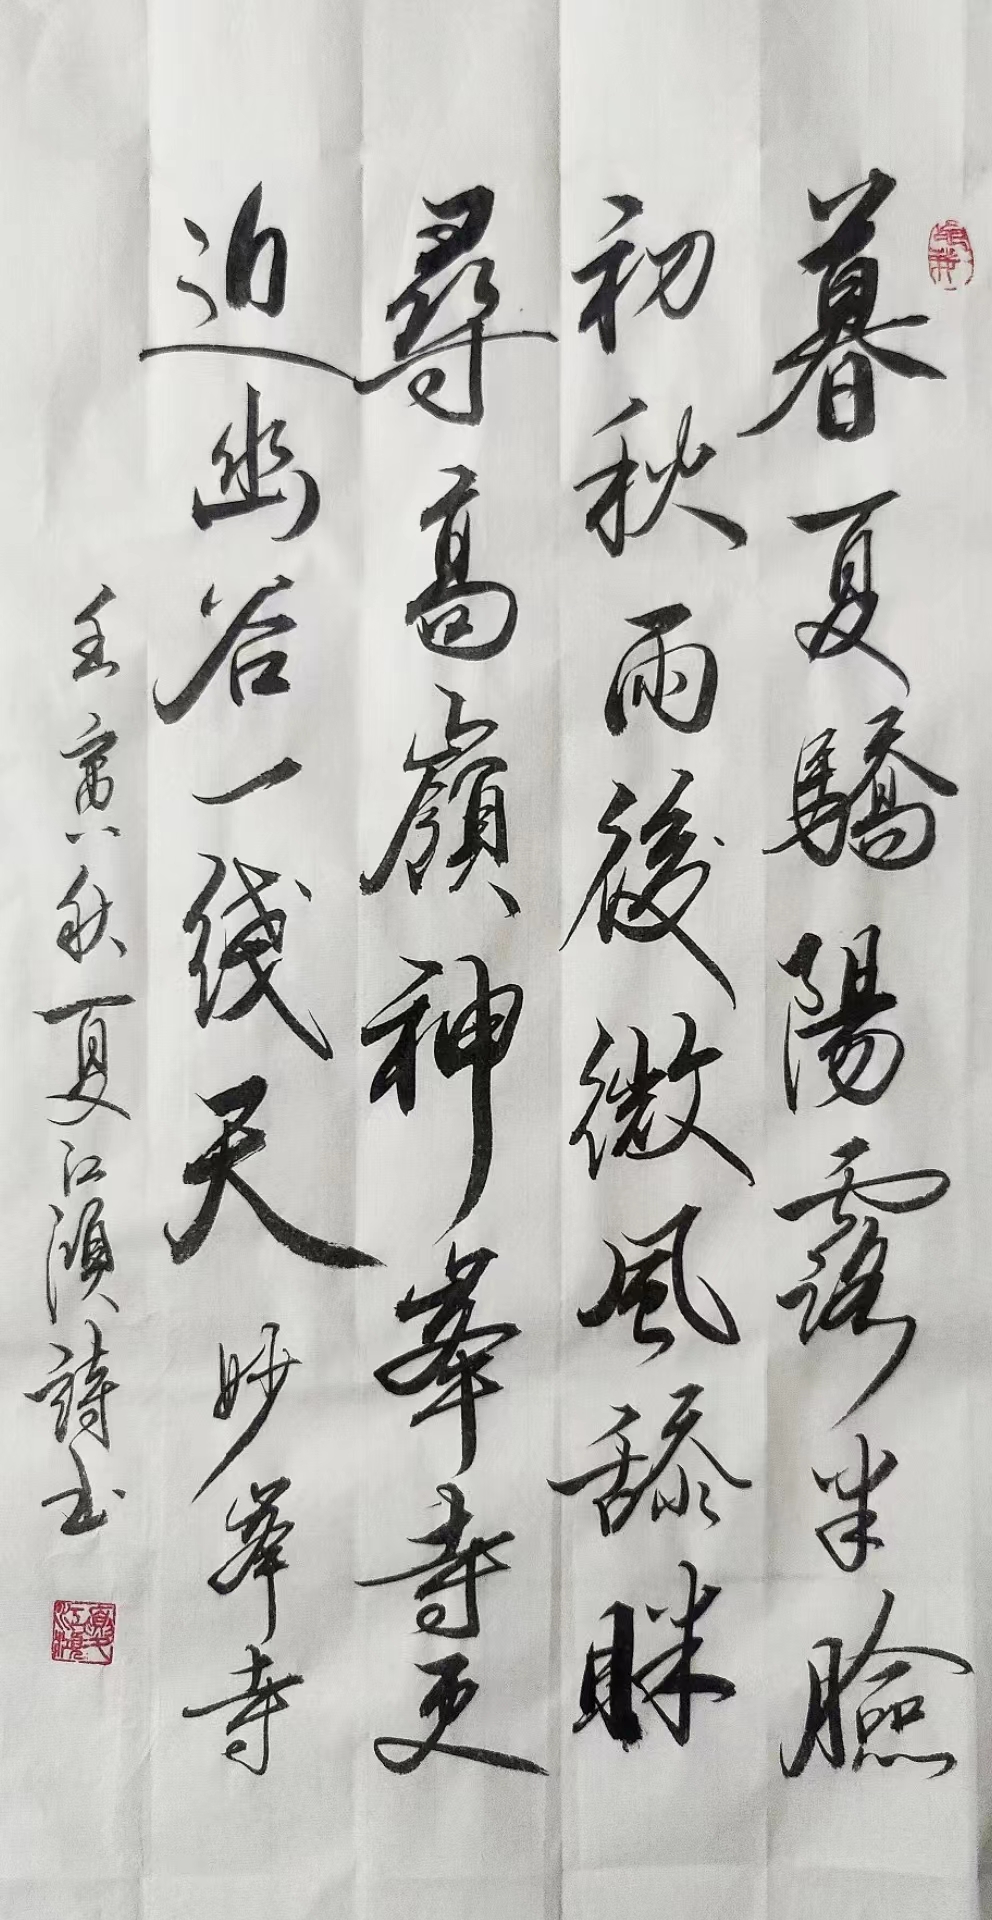 暮夏驕陽露半臉
初秋雨後微風舔眛
尋高嶺神峯寺更
迫幽谷一线天 妙峯寺
壬寅秋夏江澒詩书